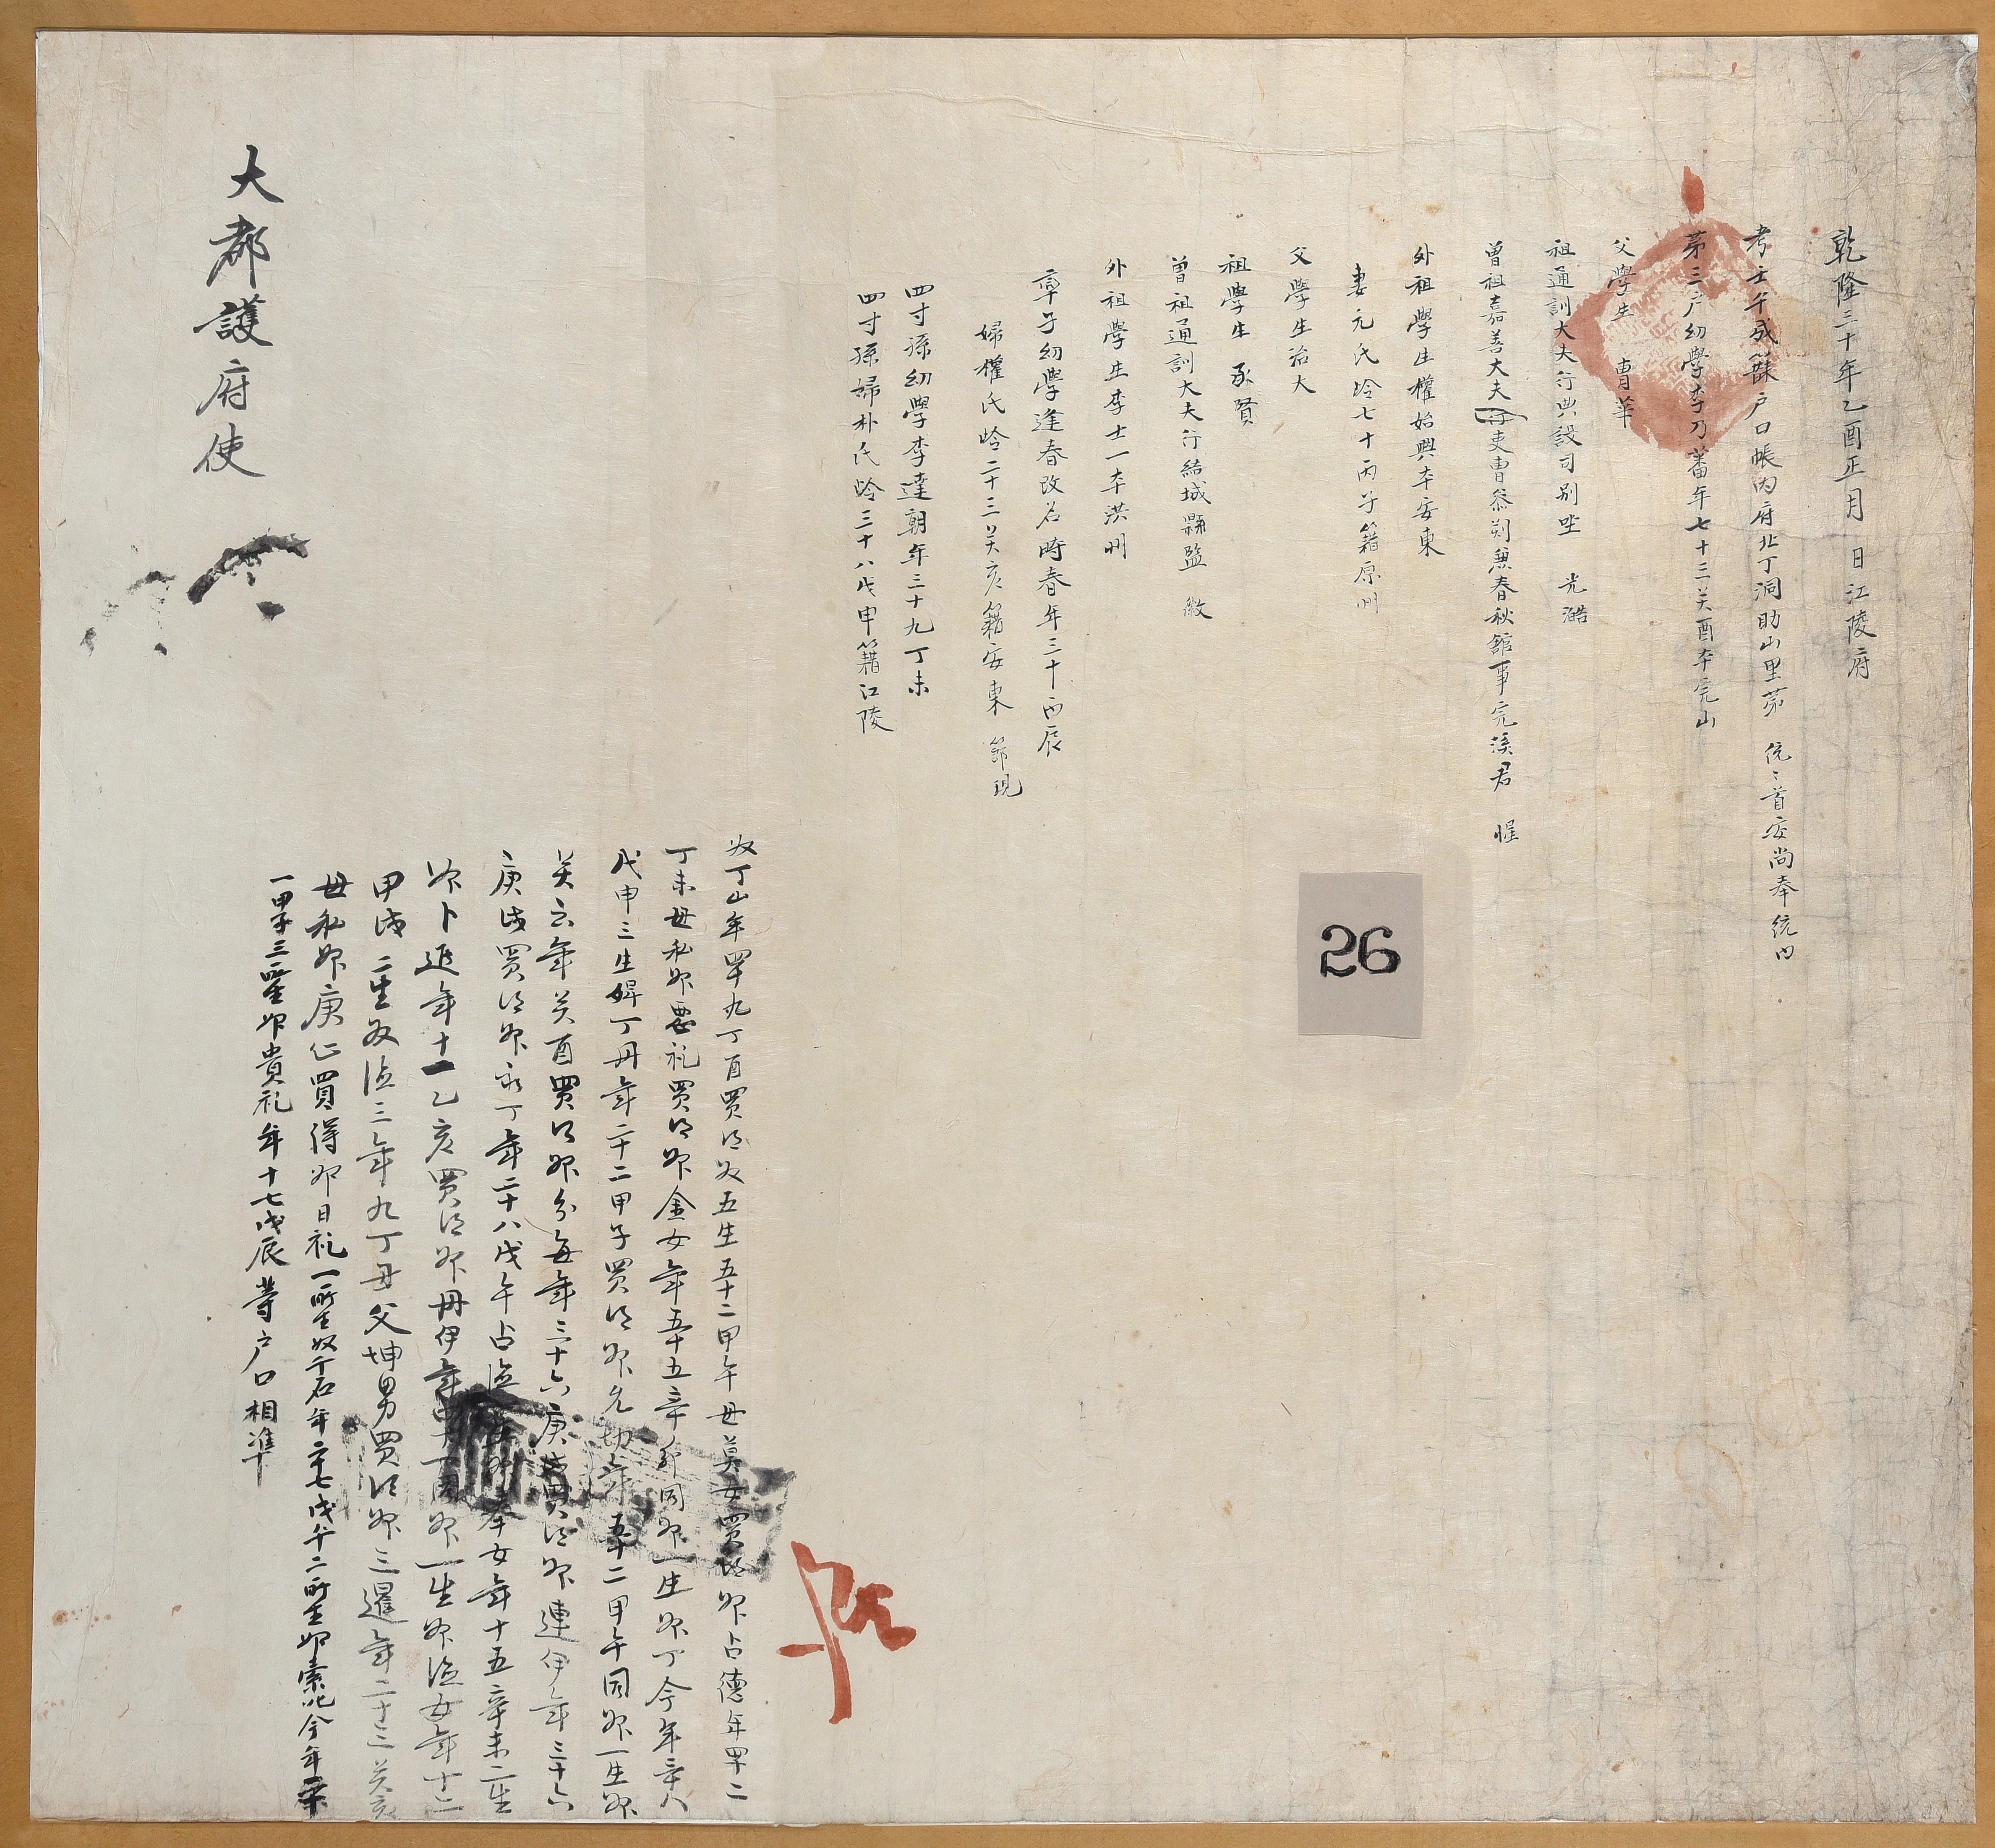 乾隆三十年乙酉正月 日江陵府
考壬午成籍戶口帳內府北丁洞助山里第 統統首安尚奉統內
第三戶幼學李乃蕃年七十三癸酉本完山
父學生 曹華
祖通訓大夫行典設司別坐 光澔
曾祖嘉善大夫行吏曹參判兼春秋館事完溪君 惺
外祖學生權始興本安東
妻元氏齡七十丙子籍原州
父學生浴大
祖學生 承賢
曾祖通訓大夫行結城縣監 緻
外祖學生李士一本洪州
率子幼學逢春改名時春年三十丙辰
婦權氏齡二十三癸亥籍安東 節現
四寸孫幼學李達朝年三十九丁未
四寸孫婦朴氏齡三十八戊申籍江陵
26
奴丁山年四十九丁酉買得奴五生五十二甲午母莫女買得婢占德年四十二
丁未母私婢要礼買得婢金女年五十五辛卯同婢一生婢丁今年三十八
戊申三生婢丁丹年二十二甲子買得婢允切年五十二甲午同婢一生婢
年癸酉買得婢分每年三十六庚戌買得婢連伊年三十六
庚戌買得婢永丁年二十八戊午占德 奉女年十五辛未二生
婢卜進年十一乙亥買得婢丹伊年 同婢一生婢德女年十三
甲戌二生奴德三年九丁丑父坤男買得婢三暹年二十三癸亥
母私婢庚仁買得婢日礼一所生奴千石年二十七戊午二所生婢 今年
甲子三所生婢貴礼年十七戊辰等戶口相準
大都護府使